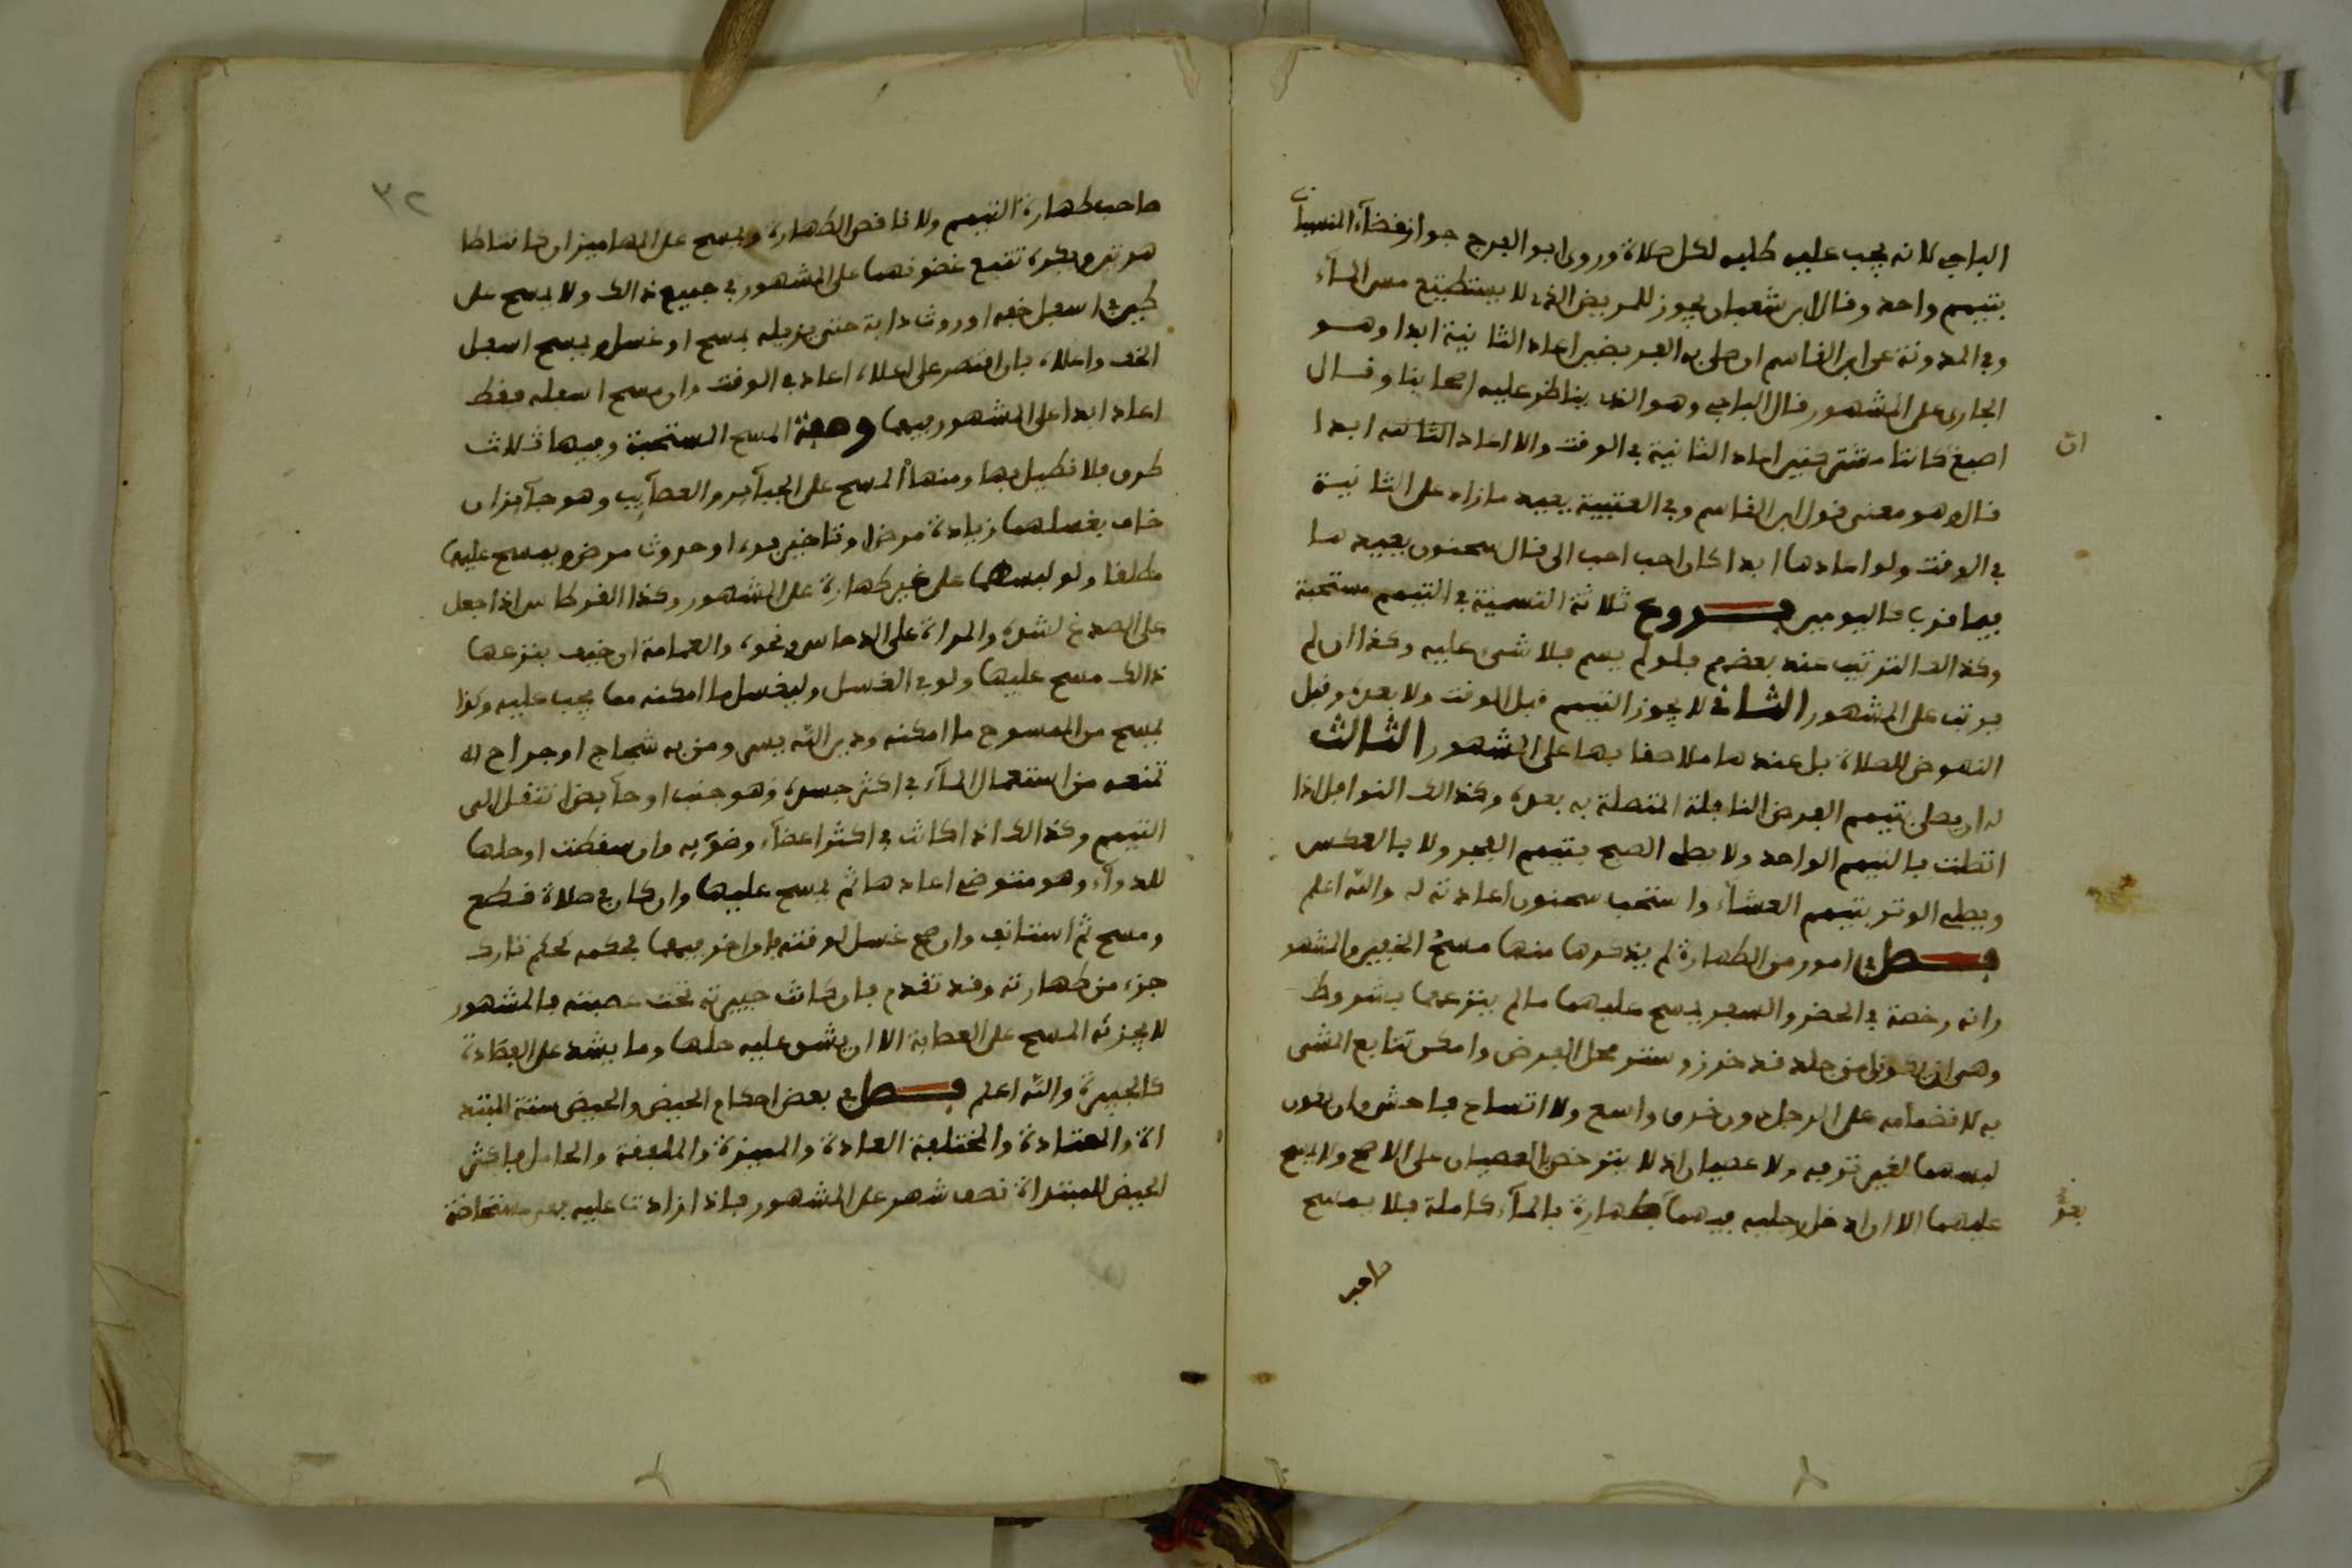 الباجي لانه يجب عليه طلبه لكل صلاة وروى ابو الفرج جواز قضآء المنسيات
بتيمم واحد وقال ابن شعبان يجوز للمريض الذي لا يستطيع مس المآء
وفي المدونة عن ابن القاسم ان صلى به الفريضين اعاد الثانية ابدا وهو
الجاري على المشهور قال الباجي وهو الذي يناظر عليه اصحابنا وقال
اصبغ كانتا مشتركتين اعاد الثانية في الوقت والا اعاد الثانية ابدا
ان
قال وهو معنى قول ابن القاسم وفي العتبية يعيد ما زاد على الثانية
في الوقت ولو اعادها ابدا كان احب الي قال سحنون يعيد ما
فيما قرب كاليومين فروع ثلاثة التسمية في التيمم مستحبة
وكذالك الترتيب عند بعضهم فلو لم يسم فلا شيء عليه وكذا ان لم
يرتب على المشهور الثاني لا يجوز التيمم قبل الوقت ولا بعده وقبل
النهوض للصلاة بل عندها ملاصقا بها على المشهور الثالث
له ان يصلي بتيمم الفرض النافلة المتصلة به بعده وكذالك النوافل اذا
اتصلت بالتيمم الواحد ولا يصلي الصبح بتيمم الفجر ولا بالعكس
ويصلي الوتر بتيمم العشاء واستحب سحنون اعادته له والله اعلم
فصل في امور من الطهارة لم يذكرها منها مسح الخفين والمشهور
وانه رخصة في الحضر والسفر يمسح عليهما ما لم ينزعهما بشروط
وهي ان يكونا من جلد قد خرز وستر محل الفرض وامكن تتابع المشي
به لانضمامه على الرجل دون خرق واسع ولا اتساح فاحش وان يكون
لبسهما لغير ترفه ولا عصيان اذ لا يترخص بالعصيان على الاصح ولا يمسح
عليهما الا ان ادخل رجليه فيهما بطهارة بالمآء كاملة فلا يمسح
بعد
٣٢
صاحب طهارة التيمم ولا ناقص الطهارة ويمسح على المهاميز ان كانتا طا
هرتين ويكره تتبع غضونهما على المشهور في جميع ذالك ولا يمسح على
طين اسفل خفه او روث دابة حتى يزيله بمسح او غسل ويمسح اسفل
الخف واعلاه فان اقتصر على اعلاه اعاد في الوقت وان مسح اسفله فقط
اعاد ابدا على المشهور فيهما وصفة المسح المستحبة وفيها ثلاث
طرق فلا نطيل بها ومنها المسح على الجبآئر والعصآيب وهو جآئز ان
خاف بغسلهما زيادة مرض او تاخير برء او حدوث مرض ويمسح عليهما
مطلقا ولو لبسهما على غير طهارة على المشهور وكذا القرطاس اذا جعل
على الصدغ لشده والمراة على الدماس ونحوه والعمامة ان خيف بنزعها
ذالك مسح عليها ولو في الغسل وليغسل ما امكنه مما يجب عليه وكذا
يمسح من الممسوح ما امكنه ودين الله يسر ومن به شجاج او جراح له
تمنعه من استعمال المآء في اكثر جسده وهو جنب او حآيض انتقل الى
التيمم وكذالك اذا كانت في اكثر اعضآء وضوءيه وان سقطت او حلها
للدوآء وهو متوضي اعادها ثم يمسح عليها وان كان في صلاة قطع
ومسح ثم استانف وان صح غسل لوقته فان اخر فيهما فحكمه كحكم تارك
جزء من طهارته وقد تقدم فان كانت جبيرته تحت عصبته فالمشهور
لا يجزئه المسح على العصابة الا ان يشق عليه حلها وما يشد على الفصادة
كالجبيرة والله اعلم فصل في بعض احكام الحيض والحيض ستة المبتد
اة والمعتادة والمختلفة العادة والمميزة والملفقة والحامل فاكثر
الحيض للمبتداة نصف شهر على المشهور فاذا زادت عليه فهي مستحاضة